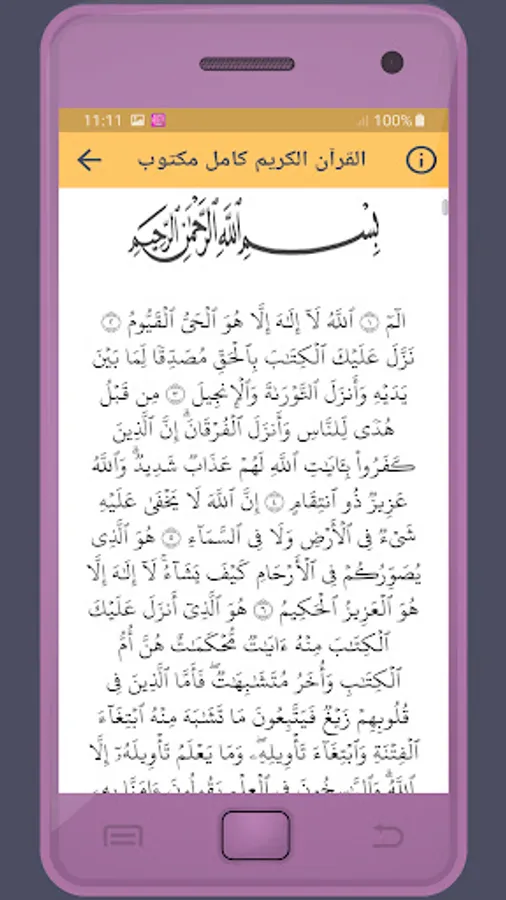 11:11
100%
القرآن الكريم كامل مكتوب
بِسْمِ ٱللَّهِ ٱلرَّحْمَٰنِ ٱلرَّحِيمِ
الٓمٓ ١ ٱللَّهُ لَآ إِلَٰهَ إِلَّا هُوَ ٱلْحَىُّ ٱلْقَيُّومُ ٢
نَزَّلَ عَلَيْكَ ٱلْكِتَٰبَ بِٱلْحَقِّ مُصَدِّقًا لِّمَا بَيْنَ
يَدَيْهِ وَأَنزَلَ ٱلتَّوْرَىٰةَ وَٱلْإِنجِيلَ ٣ مِن قَبْلُ
هُدًى لِّلنَّاسِ وَأَنزَلَ ٱلْفُرْقَانَ ۗ إِنَّ ٱلَّذِينَ
كَفَرُوا۟ بِـَٔايَٰتِ ٱللَّهِ لَهُمْ عَذَابٌ شَدِيدٌ ۗ وَٱللَّهُ
عَزِيزٌ ذُو ٱنتِقَامٍ ٤ إِنَّ ٱللَّهَ لَا يَخْفَىٰ عَلَيْهِ
شَىْءٌ فِى ٱلْأَرْضِ وَلَا فِى ٱلسَّمَآءِ ٥ هُوَ ٱلَّذِى
يُصَوِّرُكُمْ فِى ٱلْأَرْحَامِ كَيْفَ يَشَآءُ ۚ لَآ إِلَٰهَ إِلَّا
هُوَ ٱلْعَزِيزُ ٱلْحَكِيمُ ٦ هُوَ ٱلَّذِىٓ أَنزَلَ عَلَيْكَ
ٱلْكِتَٰبَ مِنْهُ ءَايَٰتٌ مُّحْكَمَٰتٌ هُنَّ أُمُّ
ٱلْكِتَٰبِ وَأُخَرُ مُتَشَٰبِهَٰتٌ ۖ فَأَمَّا ٱلَّذِينَ فِى
قُلُوبِهِمْ زَيْغٌ فَيَتَّبِعُونَ مَا تَشَٰبَهَ مِنْهُ ٱبْتِغَآءَ
ٱلْفِتْنَةِ وَٱبْتِغَآءَ تَأْوِيلِهِۦ ۗ وَمَا يَعْلَمُ تَأْوِيلَهُۥٓ إِلَّا
ٱللَّهُ ۗ وَٱلرَّٰسِخُونَ فِى ٱلْعِلْمِ يَقُولُونَ ءَامَنَّا بِهِۦ